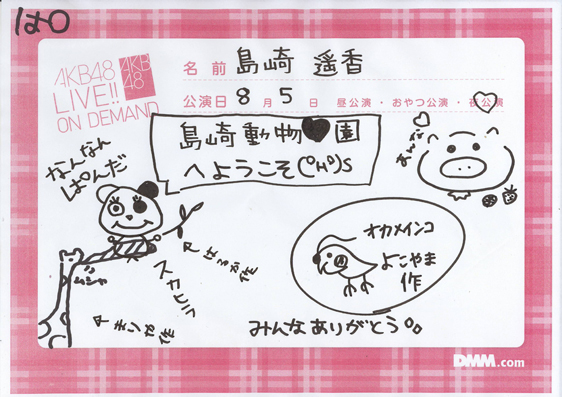 ぱ
AKB48
LIVE!!
ON DEMAND
AKB
48
名前 島崎 遥香
公演日 8月5日 昼公演・おやつ公演・夜公演
島崎動物♥園
へようこそ(°H°)S
なんなん
ぱんだ
ムシャ
スカヒラ
はるか作
まりや作
オカメインコ
よこやま
作
みんなありがとう。。
DMM.com